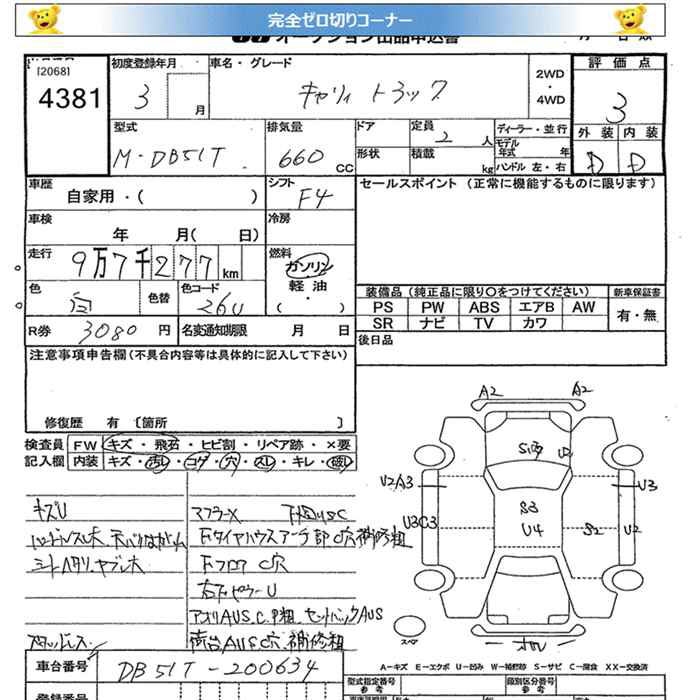 完全ゼロ切りコーナー
オークション出品申込書
[2068]
4381
初度登録年月
3
月
車名・グレード
キャリィ トラック
2WD
・
4WD
評価点
3
型式
M-DB51T
排気量
660
CC
ドア
定員
2
人
形状
積載
kg
ディーラー・並行
モデル年式
年
ハンドル 左・右
外装
内装
D
D
車歴
自家用・( )
シフト
F4
セールスポイント (正常に機能するものに限ります)
車検
年 月( 日)
冷房
走行
9万7千277
km
燃料
ガソリン
軽油
・
( )
色
白
色替
色コード
26U
装備品 (純正品に限り○をつけてください)
新車保証書
PS PW ABS エアB AW
SR ナビ TV カワ
有・無
R券
3080 円
名変通知期限
月 日
後日品
注意事項申告欄(不具合内容等は具体的に記入して下さい)
修復歴 有 〔箇所 〕
検査員
記入欄
FW
キズ・飛石・ヒビ割・リペア跡・×要
内装
キズ・汚レ・コゲ・穴・スレ・キレ・破レ
キズU
スタッドレス
マフラーX 下廻りUSC
FタイヤハウスアーチC穴補修粗
Fフロア C穴
右Fピラー U
アオリAUS.C.P粗.セットバックAUS
荷台AUSC穴.補修粗
A2
A2
U2A3
U3C3
U2
S3
U4
S2
U3
U2
スペア
A-キズ E-エクボ U-凹み W-補修跡 S-サビ C-腐食 XX-交換済
車台番号
DB51T-200634
登録番号
型式指定番号
参考
類別区分番号
参考